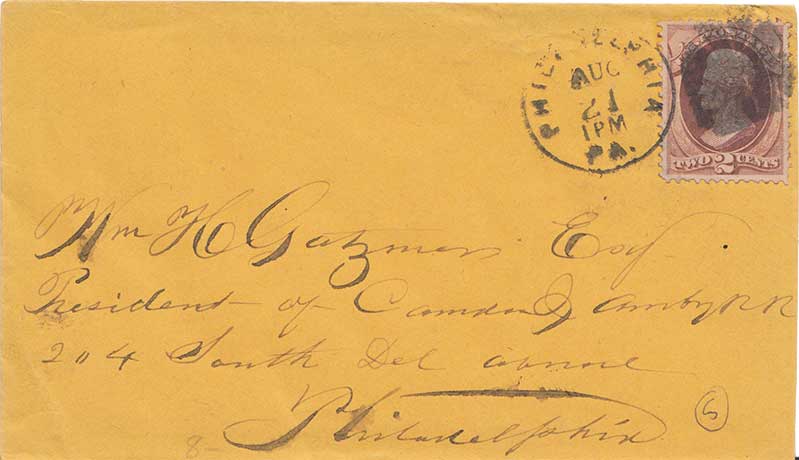 PHILADELPHIA
AUG
21
1 PM
PA.
TWO 2 CENTS
Wm H Gatzmer Esq
President of Camden & Amboy RR
204 South Del avenue
Philadelphia
8-